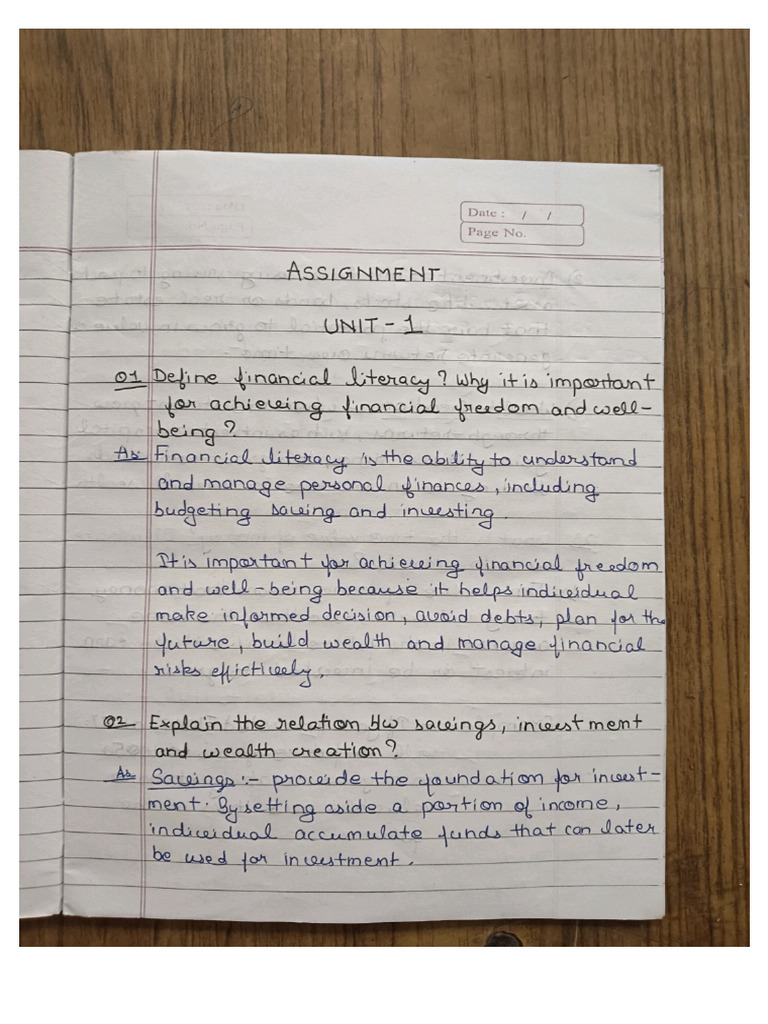 Date : / /
Page No.
ASSIGNMENT
UNIT - 1
Q1 Define financial literacy? Why it is important
for achieving financial freedom and well-
being?
As: Financial literacy is the ability to understand
and manage personal finances, including
budgeting saving and investing.
It is important for achieving financial freedom
and well-being because it helps individual
make informed decision, avoid debts, plan for the
future, build wealth and manage financial
risks effictively.
Q2 Explain the relation b/w saveings, investment
and wealth creation?
As Saveings :- provide the foundation for invest-
ment. By setting aside a portion of income,
individual accumulate funds that can later
be used for investment.